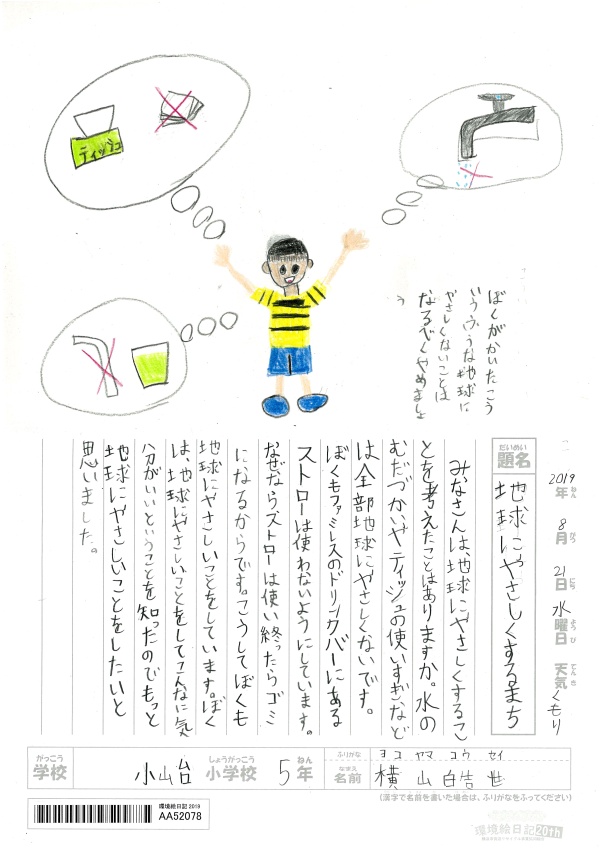 ティッシュ
ぼくがかいたこう
いうふうな地球に
やさしくないことは
なるべくやめましょ
う
2019年 8月 21日 水曜日 天気 くもり
ねん がつ にち ようび てんき
だいめい
題名
地球にやさしくするまち
みなさんは地球にやさしくするこ
とを考えたことはありますか。水の
むだづかいやティッシュの使いすぎなど
は全部地球にやさしくないです。
ぼくもファミレスのドリンクバーにある
ストローは使わないようにしています。
なぜならストローは使い終ったらゴミ
になるからです。こうしてぼくも
地球にやさしいことをしています。ぼく
は、地球にやさしいことをしてこんなに気
分がいいということを知ったのでもっと
地球にやさしいことをしたいと
思いました。
がっこう しょうがっこう ねん
学校 小山台 小学校 5年
ふりがな ヨコ ヤマ コウ セイ
なまえ
名前 横山 皓世
(漢字で名前を書いた場合は、ふりがなをふってください)
環境絵日記 2019
AA52078
環境絵日記20th